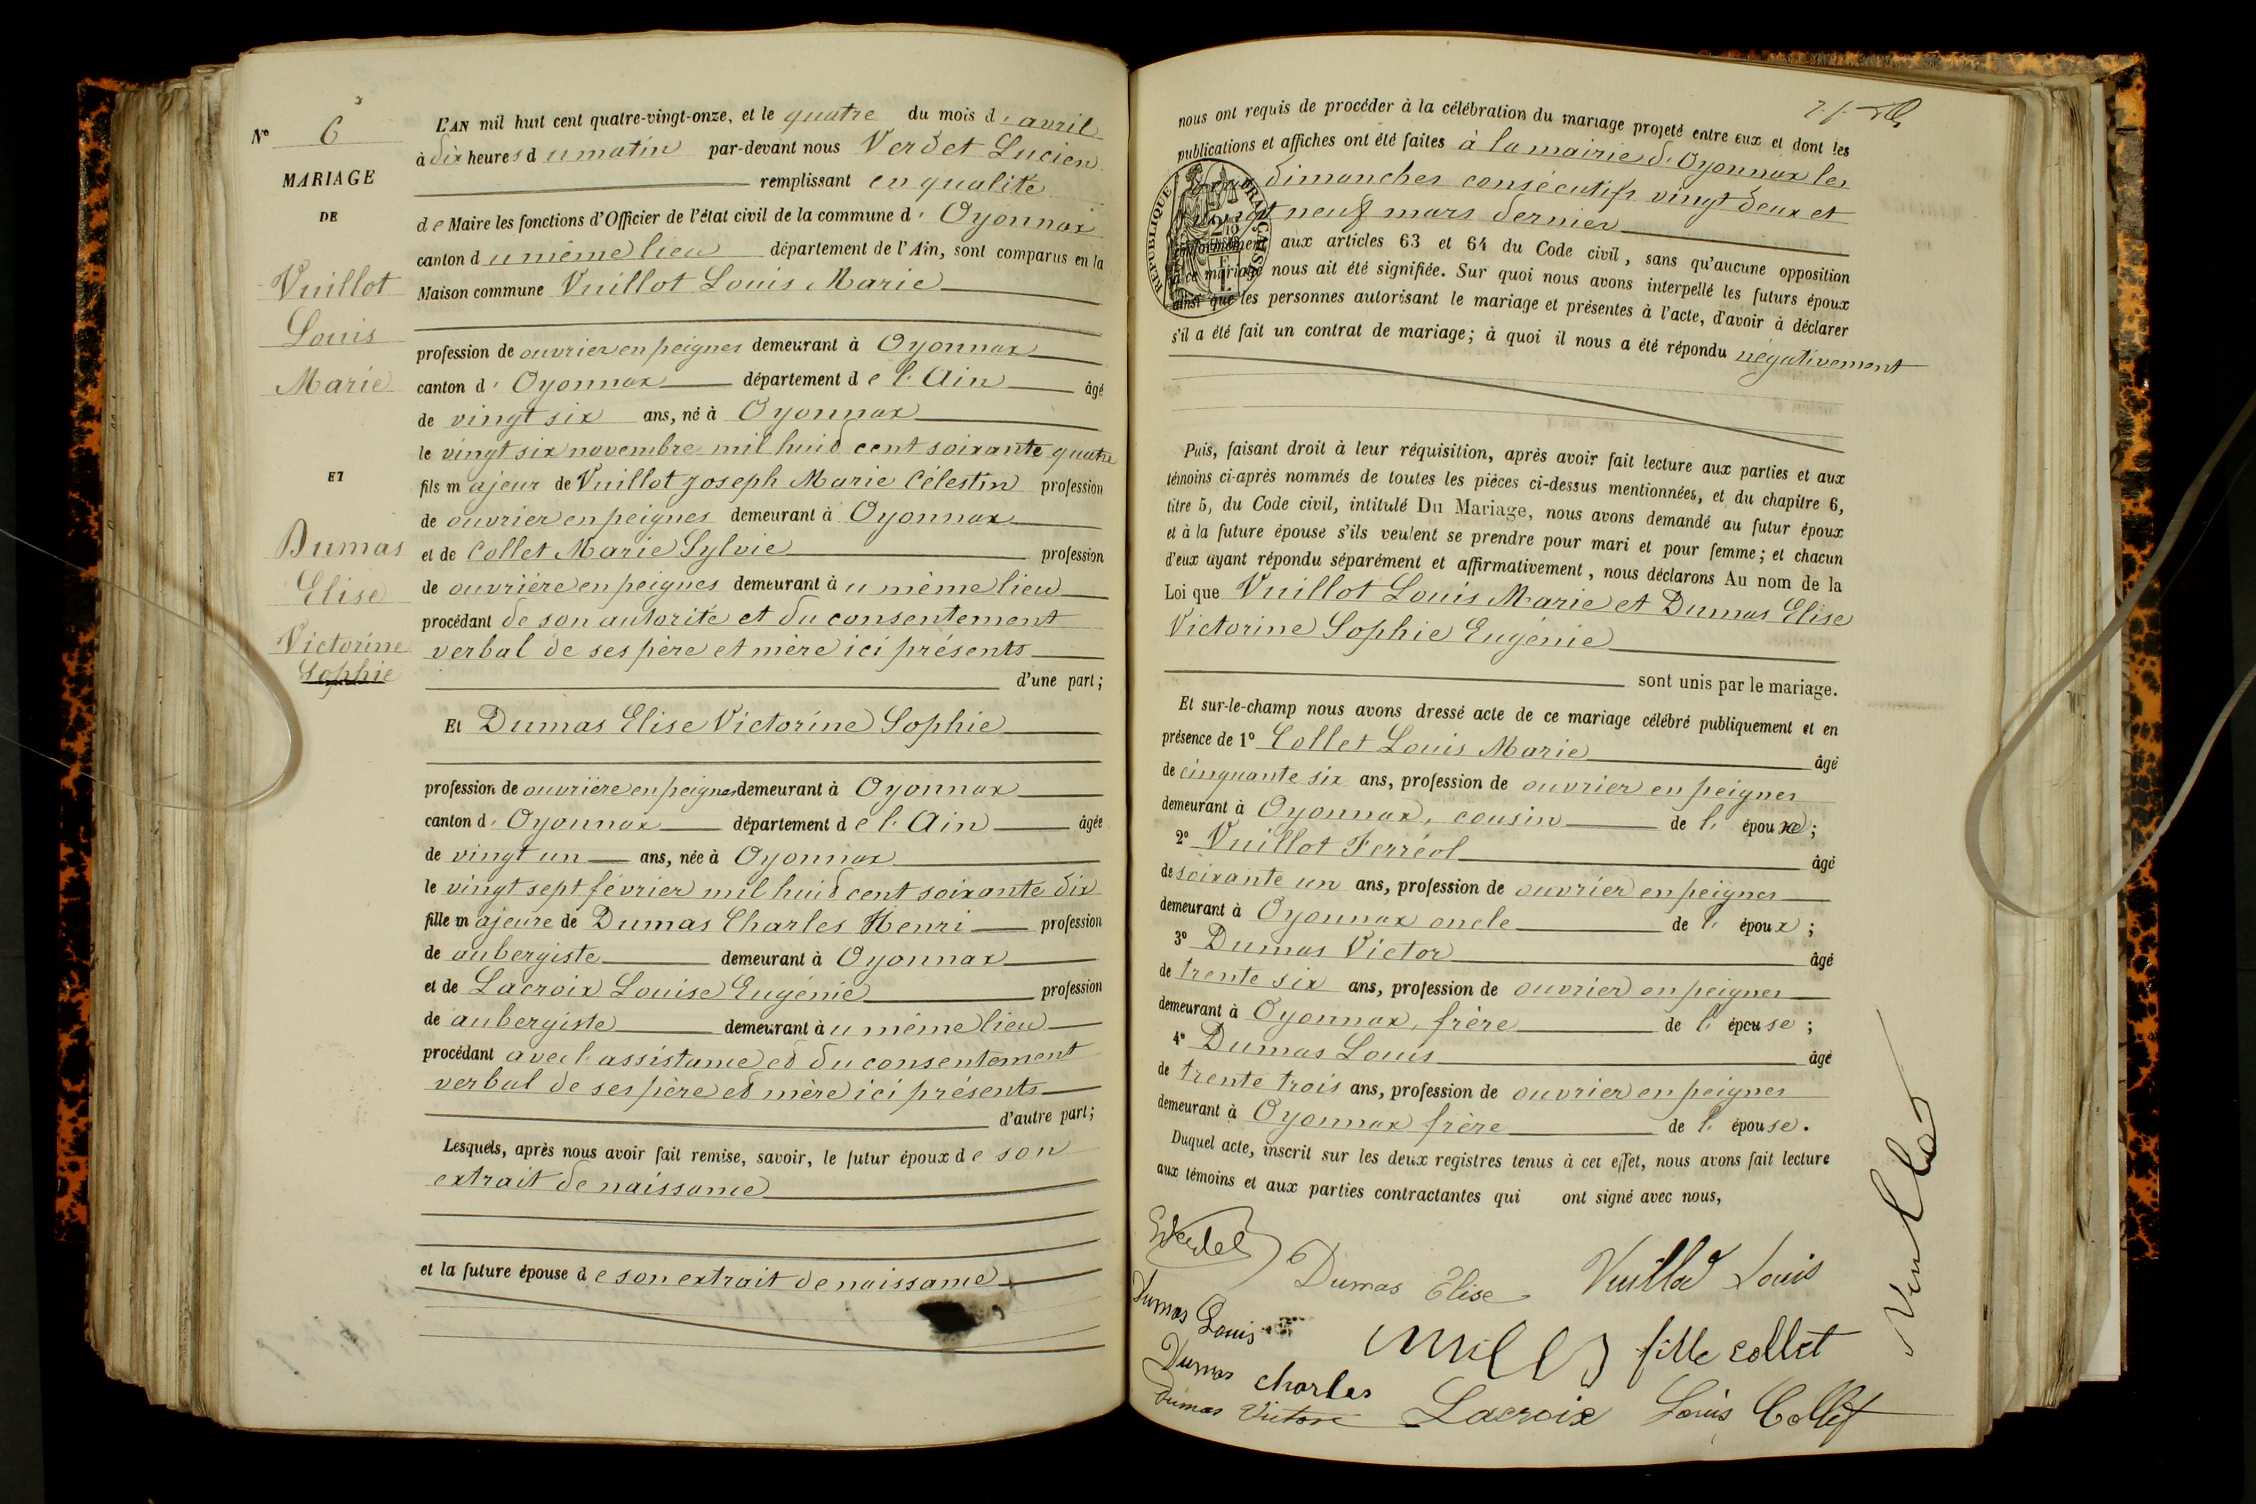 N° 6
MARIAGE
DE
Vuillot
Louis
Marie
ET
Dumas
Elise
Victorine
Sophie
L'AN mil huit cent quatre-vingt-onze, et le quatre du mois d'avril
à dix heures du matin par-devant nous Verdet Lucien
remplissant en qualité
de Maire les fonctions d'Officier de l'état civil de la commune d'Oyonnax
canton du même lieu département de l'Ain, sont comparus en la
Maison commune Vuillot Louis Marie
profession de ouvrier en peignes demeurant à Oyonnax
canton d'Oyonnax département de l'Ain âgé
de vingt six ans, né à Oyonnax
le vingt six novembre mil huit cent soixante quatre
fils majeur de Vuillot Joseph Marie Célestin profession
de ouvrier en peignes demeurant à Oyonnax
et de Collet Marie Sylvie profession
de ouvrière en peignes demeurant au même lieu
procédant de son autorité et du consentement
verbal de ses père et mère ici présents
d'une part;
Et Dumas Elise Victorine Sophie
profession de ouvrière en peignes demeurant à Oyonnax
canton d'Oyonnax département de l'Ain âgée
de vingt un ans, née à Oyonnax
le vingt sept février mil huit cent soixante dix
fille majeure de Dumas Charles Henri profession
de aubergiste demeurant à Oyonnax
et de Lacroix Louise Eugénie profession
de aubergiste demeurant au même lieu
procédant avec l'assistance et du consentement
verbal de ses père et mère ici présents
d'autre part;
Lesquels, après nous avoir fait remise, savoir, le futur époux de son
extrait de naissance
et la future épouse de son extrait de naissance
nous ont requis de procéder à la célébration du mariage projeté entre eux et dont les
publications et affiches ont été faites à la mairie d'Oyonnax les
dimanches consécutifs vingt deux et
vingt neuf mars dernier
RÉPUBLIQUE FRANÇAISE
conformément aux articles 63 et 64 du Code civil, sans qu'aucune opposition
à ce mariage nous ait été signifiée. Sur quoi nous avons interpellé les futurs époux
ainsi que les personnes autorisant le mariage et présentes à l'acte, d'avoir à déclarer
s'il a été fait un contrat de mariage; à quoi il nous a été répondu négativement
Puis, faisant droit à leur réquisition, après avoir fait lecture aux parties et aux
témoins ci-après nommés de toutes les pièces ci-dessus mentionnées, et du chapitre 6,
titre 5, du Code civil, intitulé Du Mariage, nous avons demandé au futur époux
et à la future épouse s'ils veulent se prendre pour mari et pour femme; et chacun
d'eux ayant répondu séparément et affirmativement, nous déclarons Au nom de la
Loi que Vuillot Louis Marie et Dumas Elise
Victorine Sophie Eugénie
sont unis par le mariage.
Et sur-le-champ nous avons dressé acte de ce mariage célébré publiquement et en
présence de 1° Collet Louis Marie âgé
de cinquante six ans, profession de ouvrier en peignes
demeurant à Oyonnax, cousin de l'époux;
2° Vuillot Ferréol âgé
de soixante un ans, profession de ouvrier en peignes
demeurant à Oyonnax oncle de l'époux;
3° Dumas Victor âgé
de trente six ans, profession de ouvrier en peignes
demeurant à Oyonnax, frère de l'épouse;
4° Dumas Louis âgé
de trente trois ans, profession de ouvrier en peignes
demeurant à Oyonnax frère de l'épouse.
Duquel acte, inscrit sur les deux registres tenus à cet effet, nous avons fait lecture
aux témoins et aux parties contractantes qui ont signé avec nous,
Verdet
Dumas Elise Vuillot Louis
Dumas Louis
fille collet
Dumas charles
Dumas Victor Lacroix Louis Collet